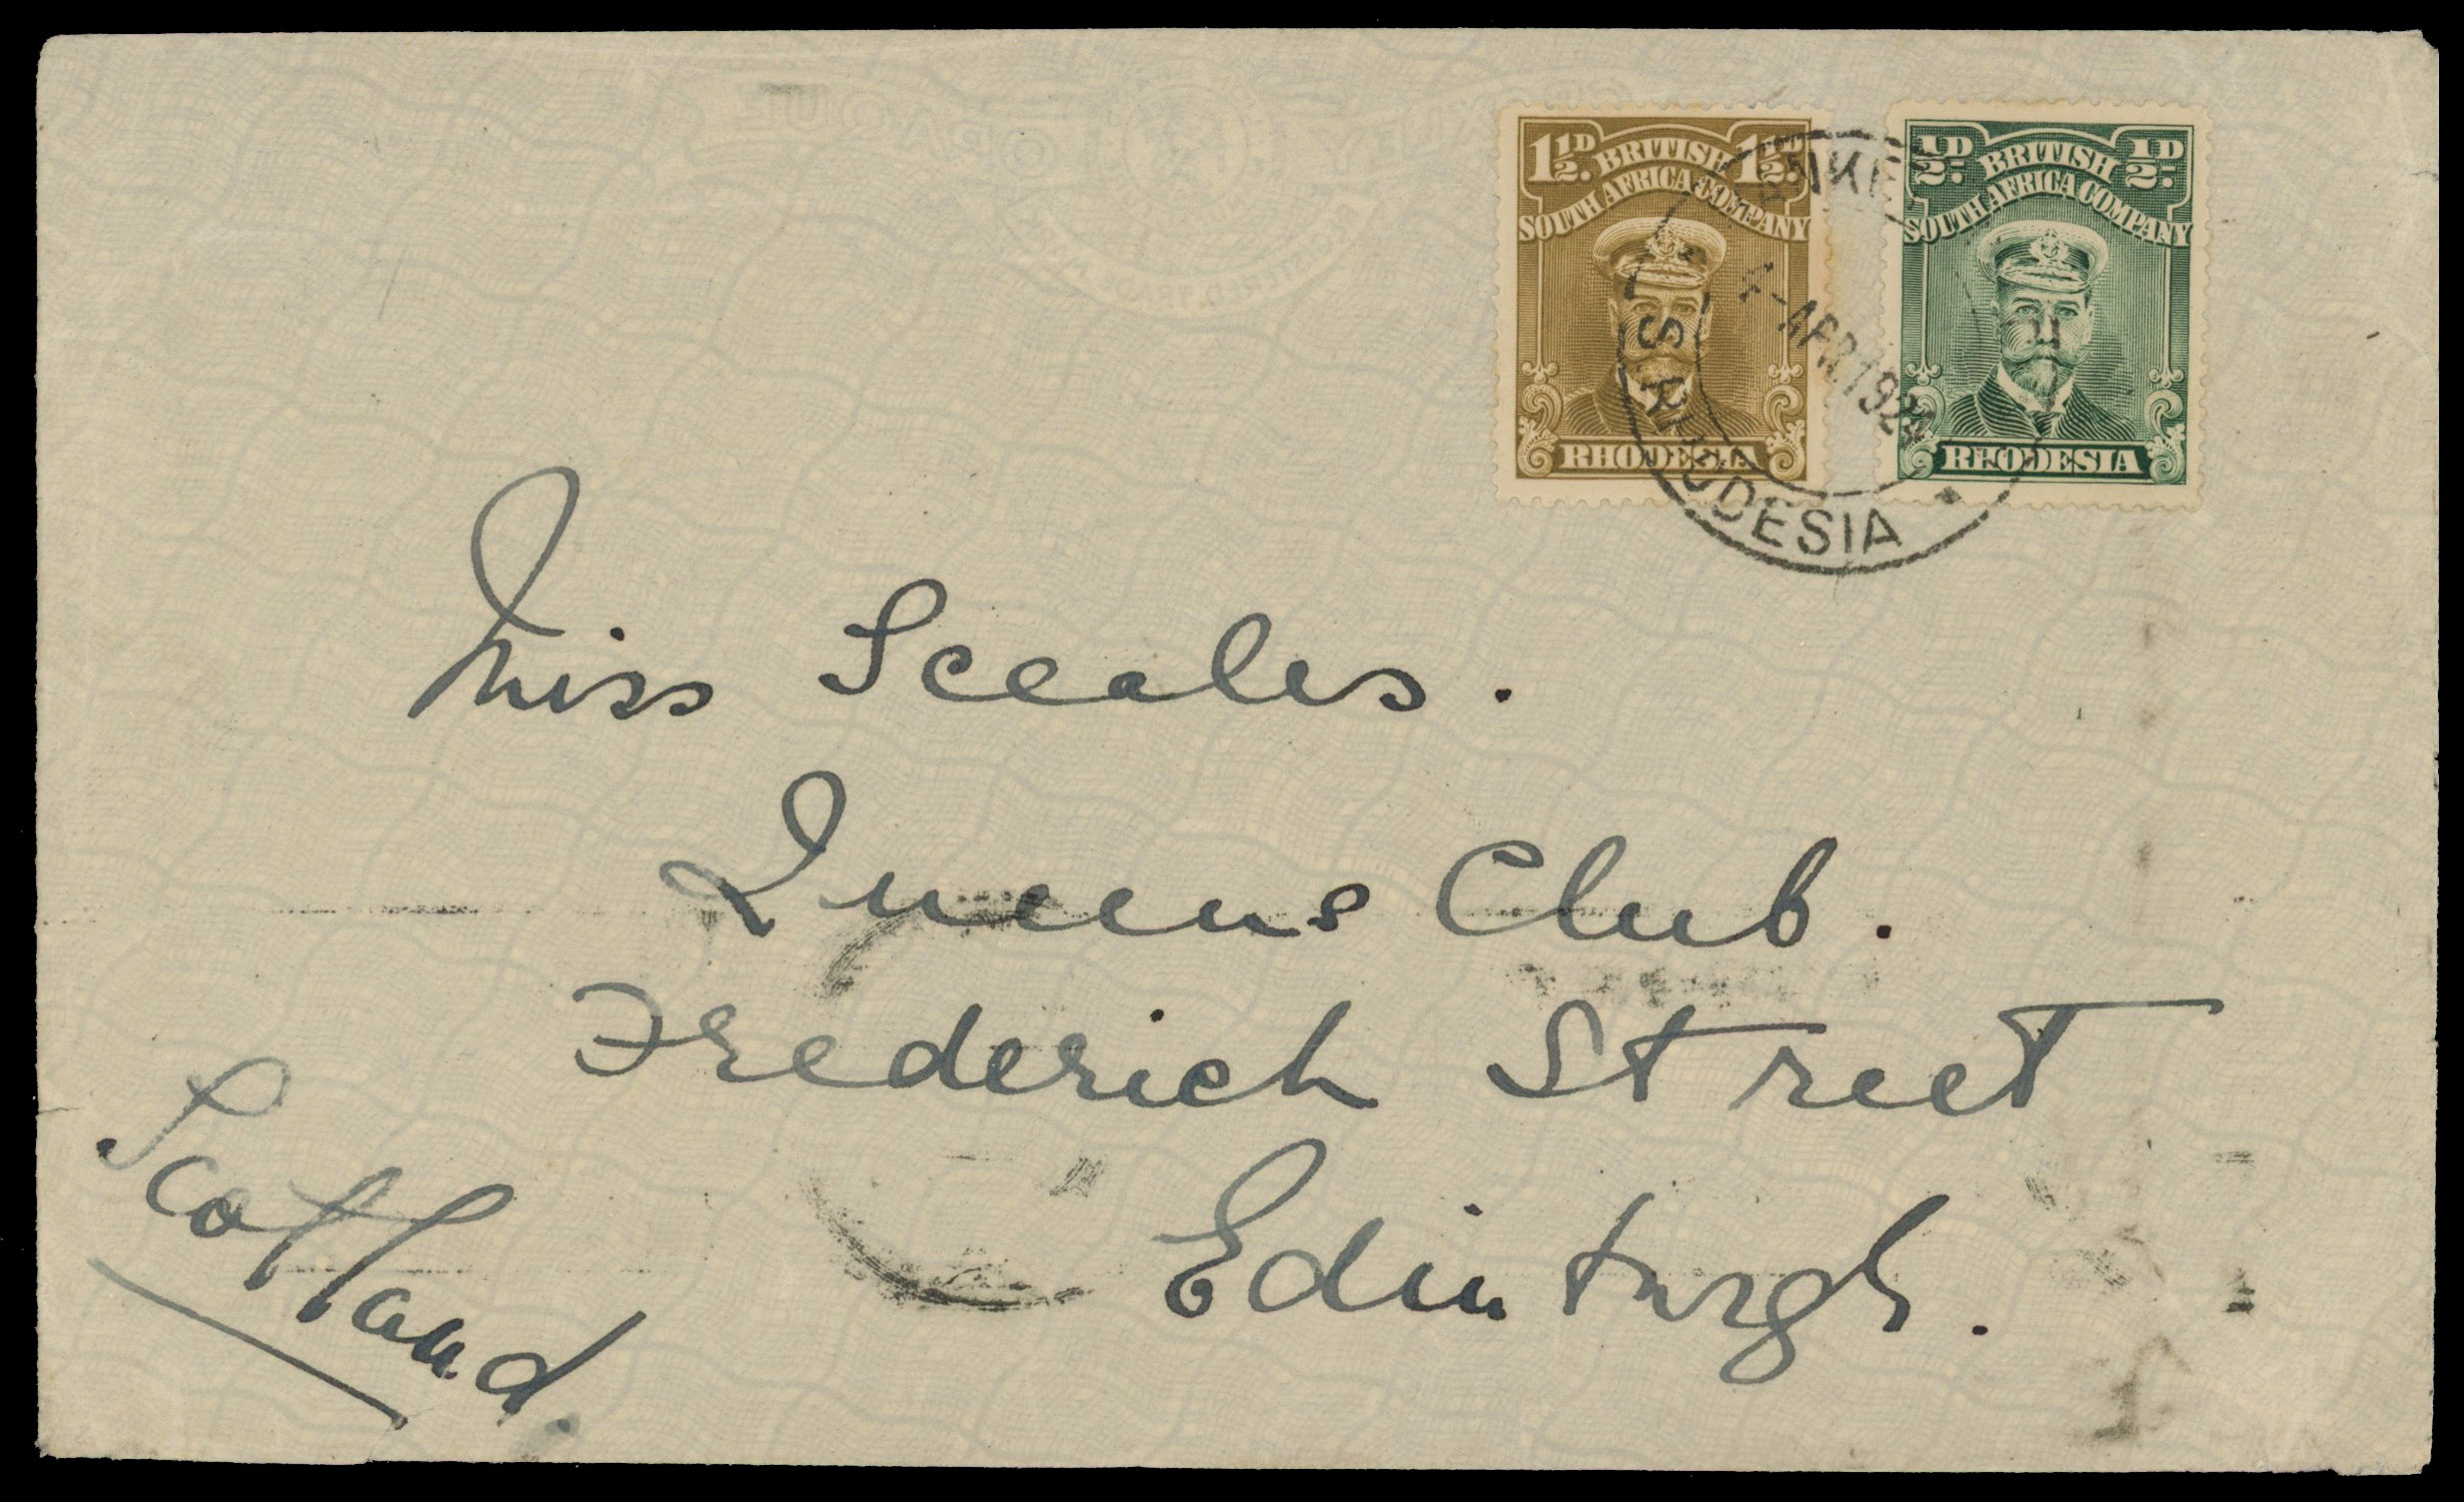 1½D. BRITISH 1½D.
SOUTH AFRICA COMPANY
RHODESIA
½D. BRITISH ½D.
SOUTH AFRICA COMPANY
RHODESIA
4-APR.1924
S. RHODESIA
Miss Sceales.
Queens Club.
Frederick Street
Edinburgh.
Scotland.
OPAQUE